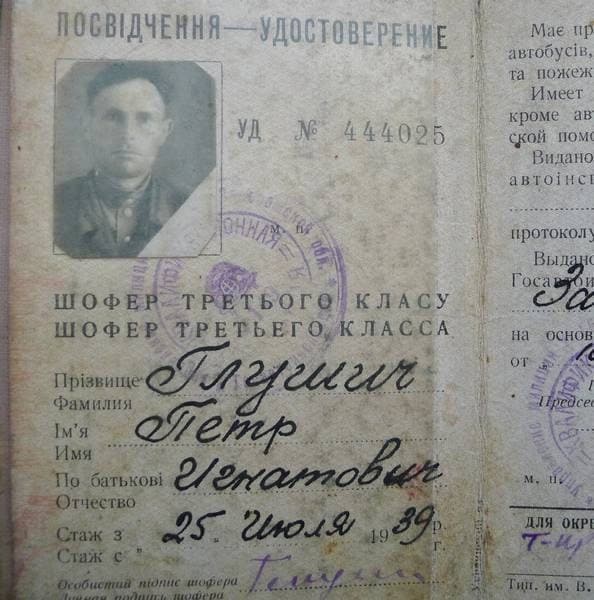 ПОСВІДЧЕННЯ—УДОСТОВЕРЕНИЕ
УД № 444025
м. п.
ШОФЕР ТРЕТЬОГО КЛАСУ
ШОФЕР ТРЕТЬЕГО КЛАССА
Прізвище Глушич
Фамилия
Ім'я Петр
Имя
По батькові Игнатович
Отчество
Стаж з 25 Июля 1939 р.
Стаж с "
Особистий підпис шофера
Личная подпись шофера
Має
автобусів,
та
Имеет
кроме
ской
Видано
автоінс
протоколу
Выдано
Госавто
За
на основ
от
Председ
м. п.
ДЛЯ ОКРЕ
Тип. им. В.